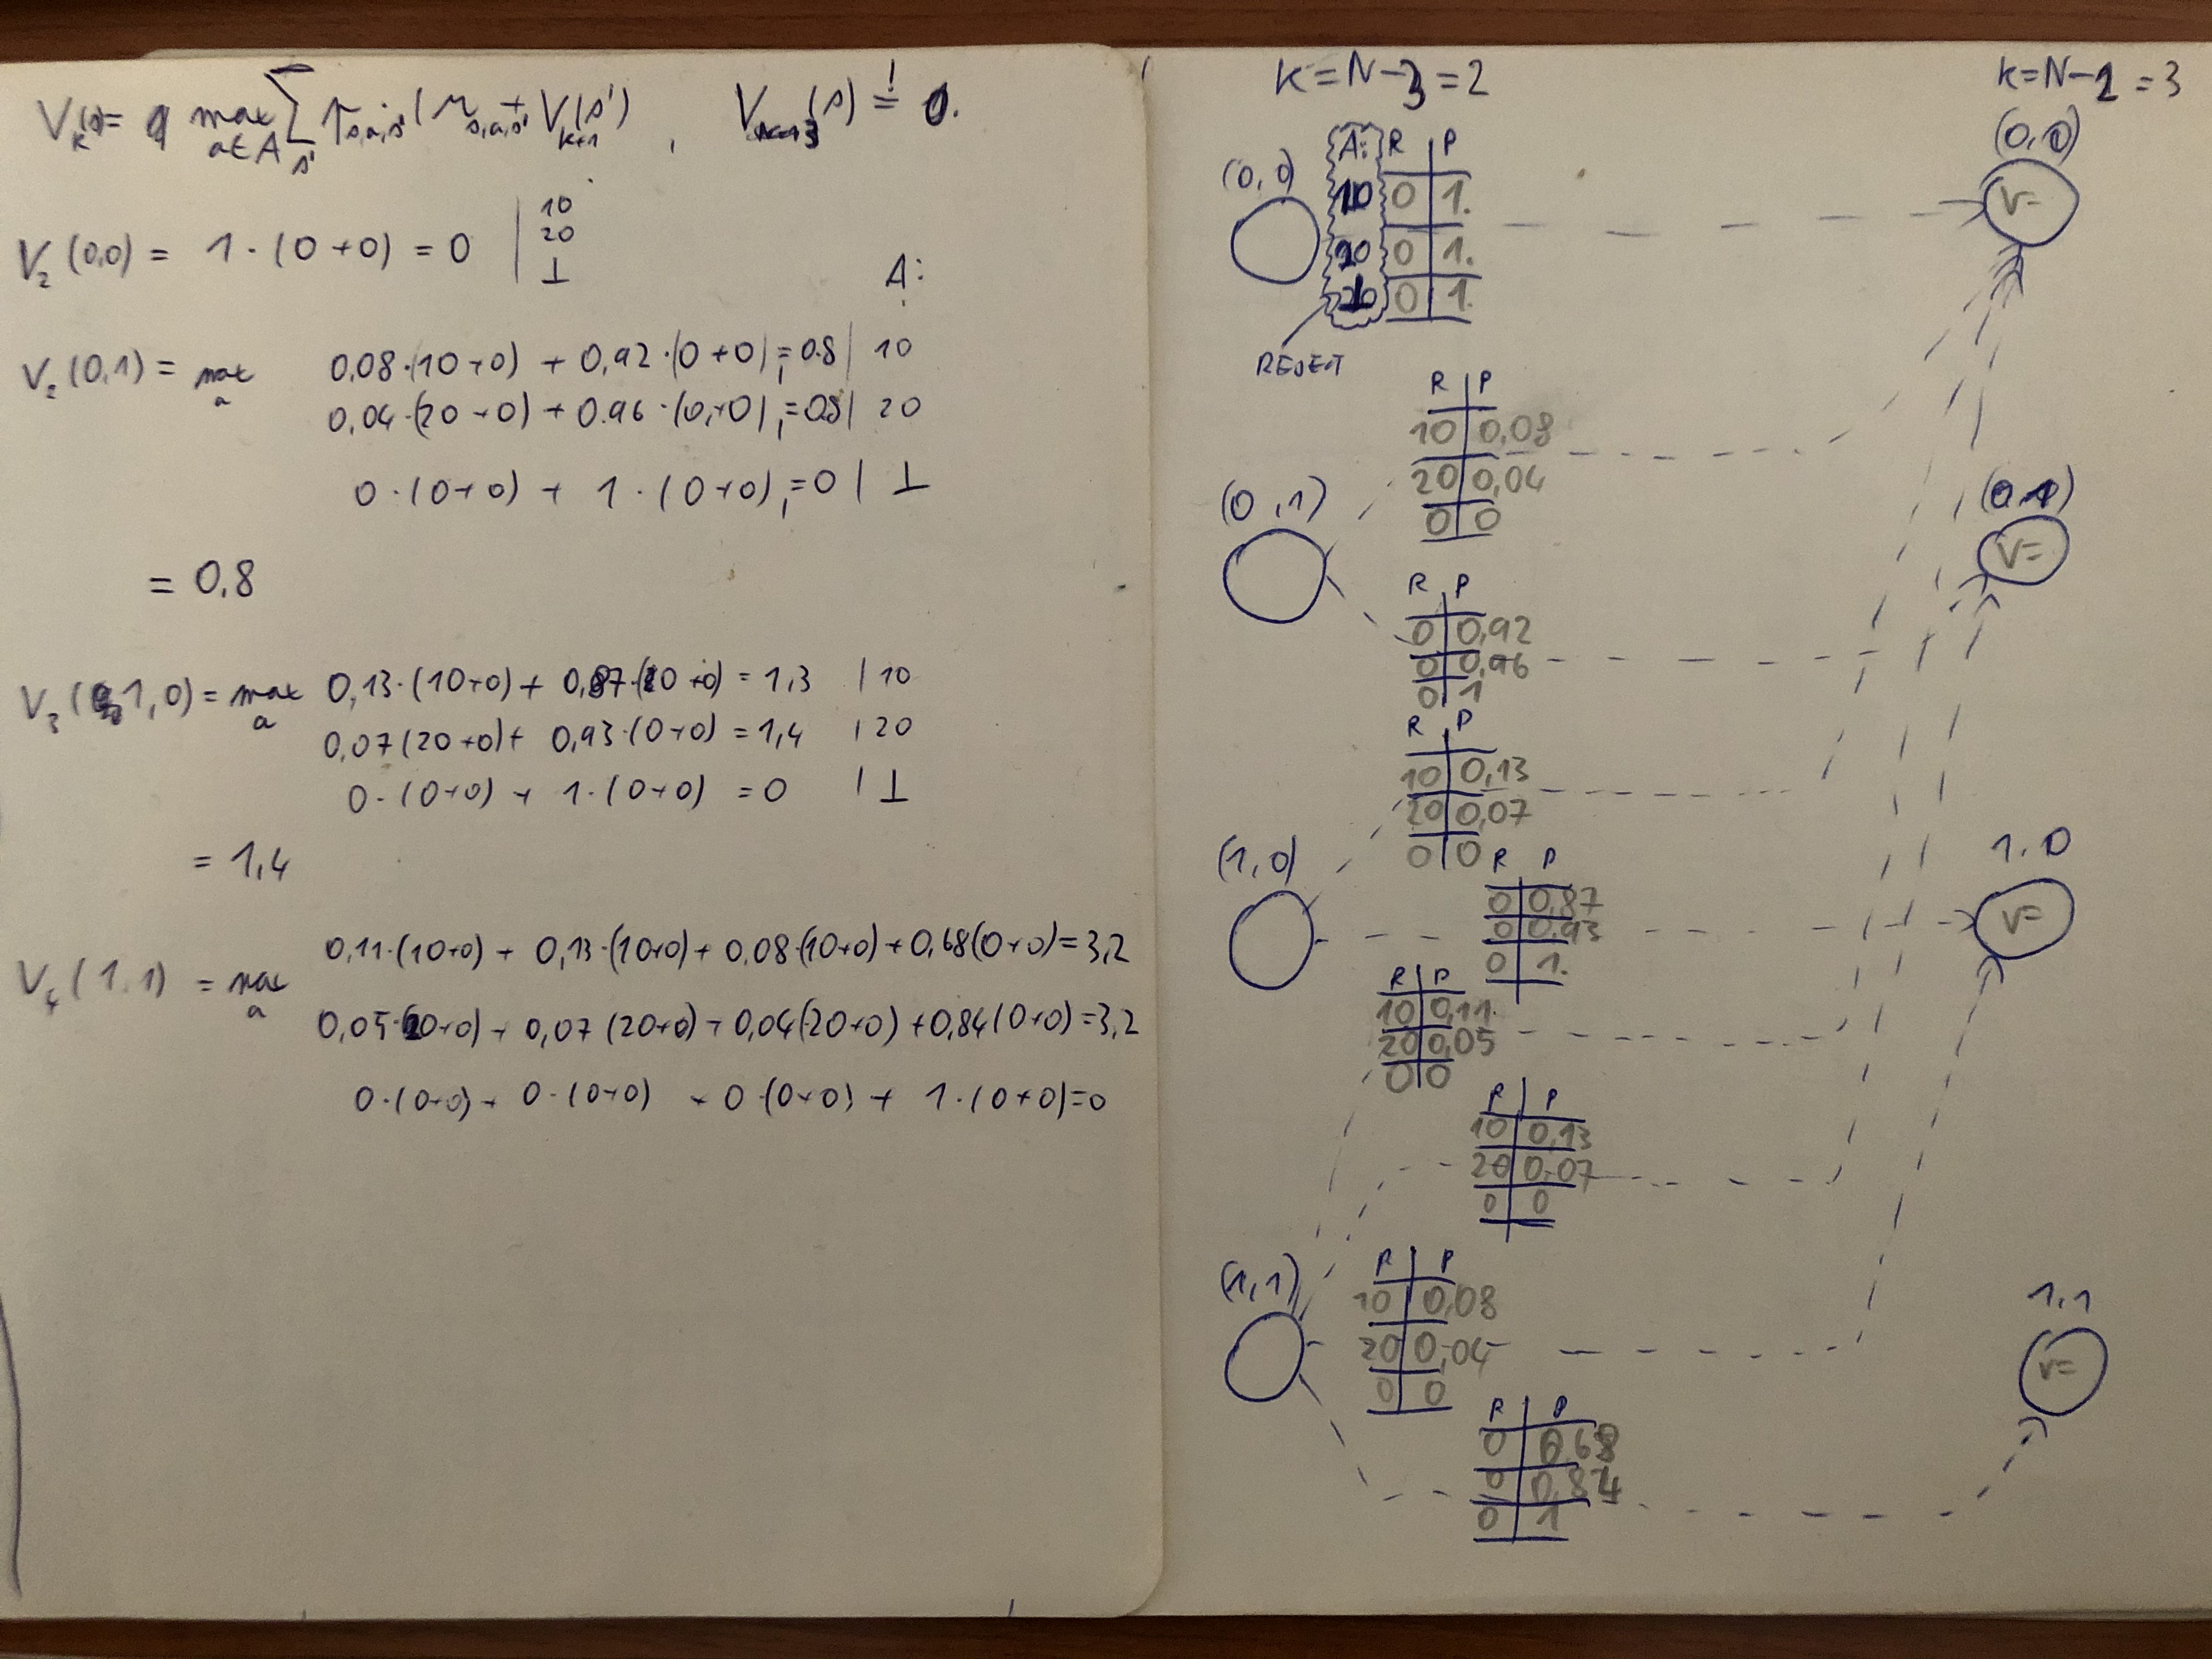 V_k(s) = max_{a∈A} Σ_{s'} p_{s,a,s'} (r_{s,a,s'} + V_{k+1}(s')) , V_3(s) = 0.
V_2((0,0)) = 1 · (0+0) = 0 | 10 20 ⊥
A:
V_2((0,1)) = max_a 0,08·(10+0) + 0,92·(0+0) = 0.8 | 10
0,04·(20+0) + 0.96·(0+0) = 0.8 | 20
0·(0+0) + 1·(0+0) = 0 | ⊥
= 0,8
V_3((1,0) = max_a 0,13·(10+0) + 0,87·(0+0) = 1,3 | 10
0,07(20+0) + 0,93·(0+0) = 1,4 | 20
0·(0+0) + 1·(0+0) = 0 | ⊥
= 1,4
V_4((1.1) = max_a 0,11·(10+0) + 0,13·(10+0) + 0,08·(10+0) + 0,68(0+0) = 3,2
0,05·(20+0) + 0,07(20+0) + 0,04(20+0) + 0,84(0+0) = 3,2
0·(0+0) + 0·(0+0) + 0·(0+0) + 1·(0+0) = 0
k=N-3=2
k=N-1=3
(0,0)
A: R P
10 0 1.
0 1.
0 1.
(0,0)
V=
(0,1)
R P
10 0,08
20 0,04
0 0
R P
0 0,92
0 0,96
0 1
(0,1)
V=
(1,0)
R P
10 0,13
20 0,07
0 0
R P
0 0,87
0 0,93
0 1.
1.0
V=
(1,1)
R P
10 0,11
20 0,05
0 0
R P
10 0,13
20 0,07
0 0
R P
10 0,08
20 0,04
0 0
R P
0 0,68
0 0,84
0 1
1,1
V=